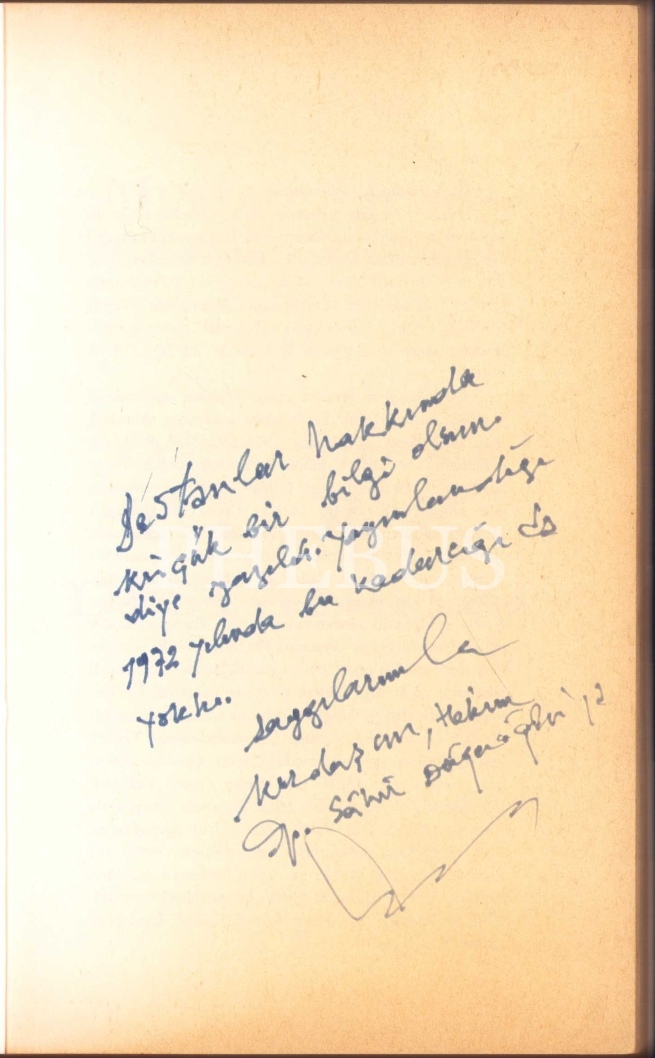 Destanlar hakkında
küçük bir bilgi olsun
diye yazıldı. Yayımlandığı
1972 yılında bu kadarcığı da
yoktu.
Saygılarımla
Kardaşım, Hekim
Op. Sâhir
PHEBUS